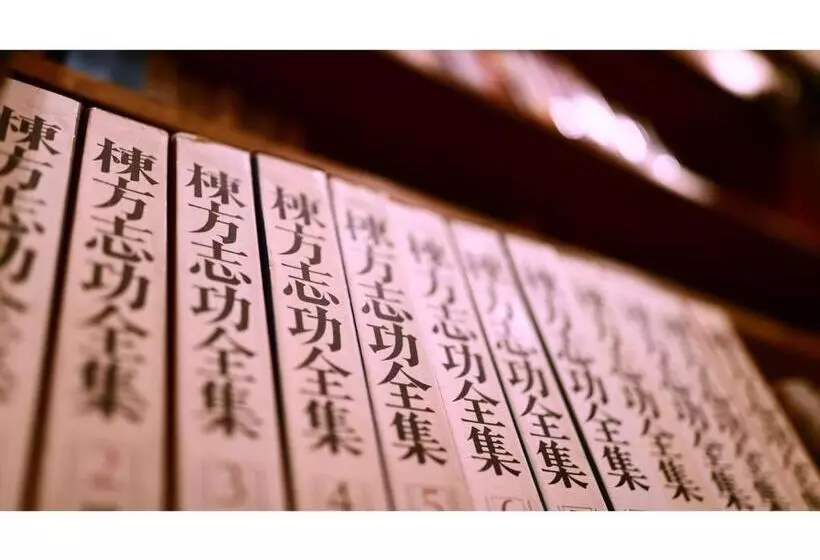 棟方志功全集
棟方志功全集 2
棟方志功全集 3
棟方志功全集 4
棟方志功全集 5
棟方志功全集 6
棟方志功全集
棟方志功全集
棟方志功全集
棟方志功全集